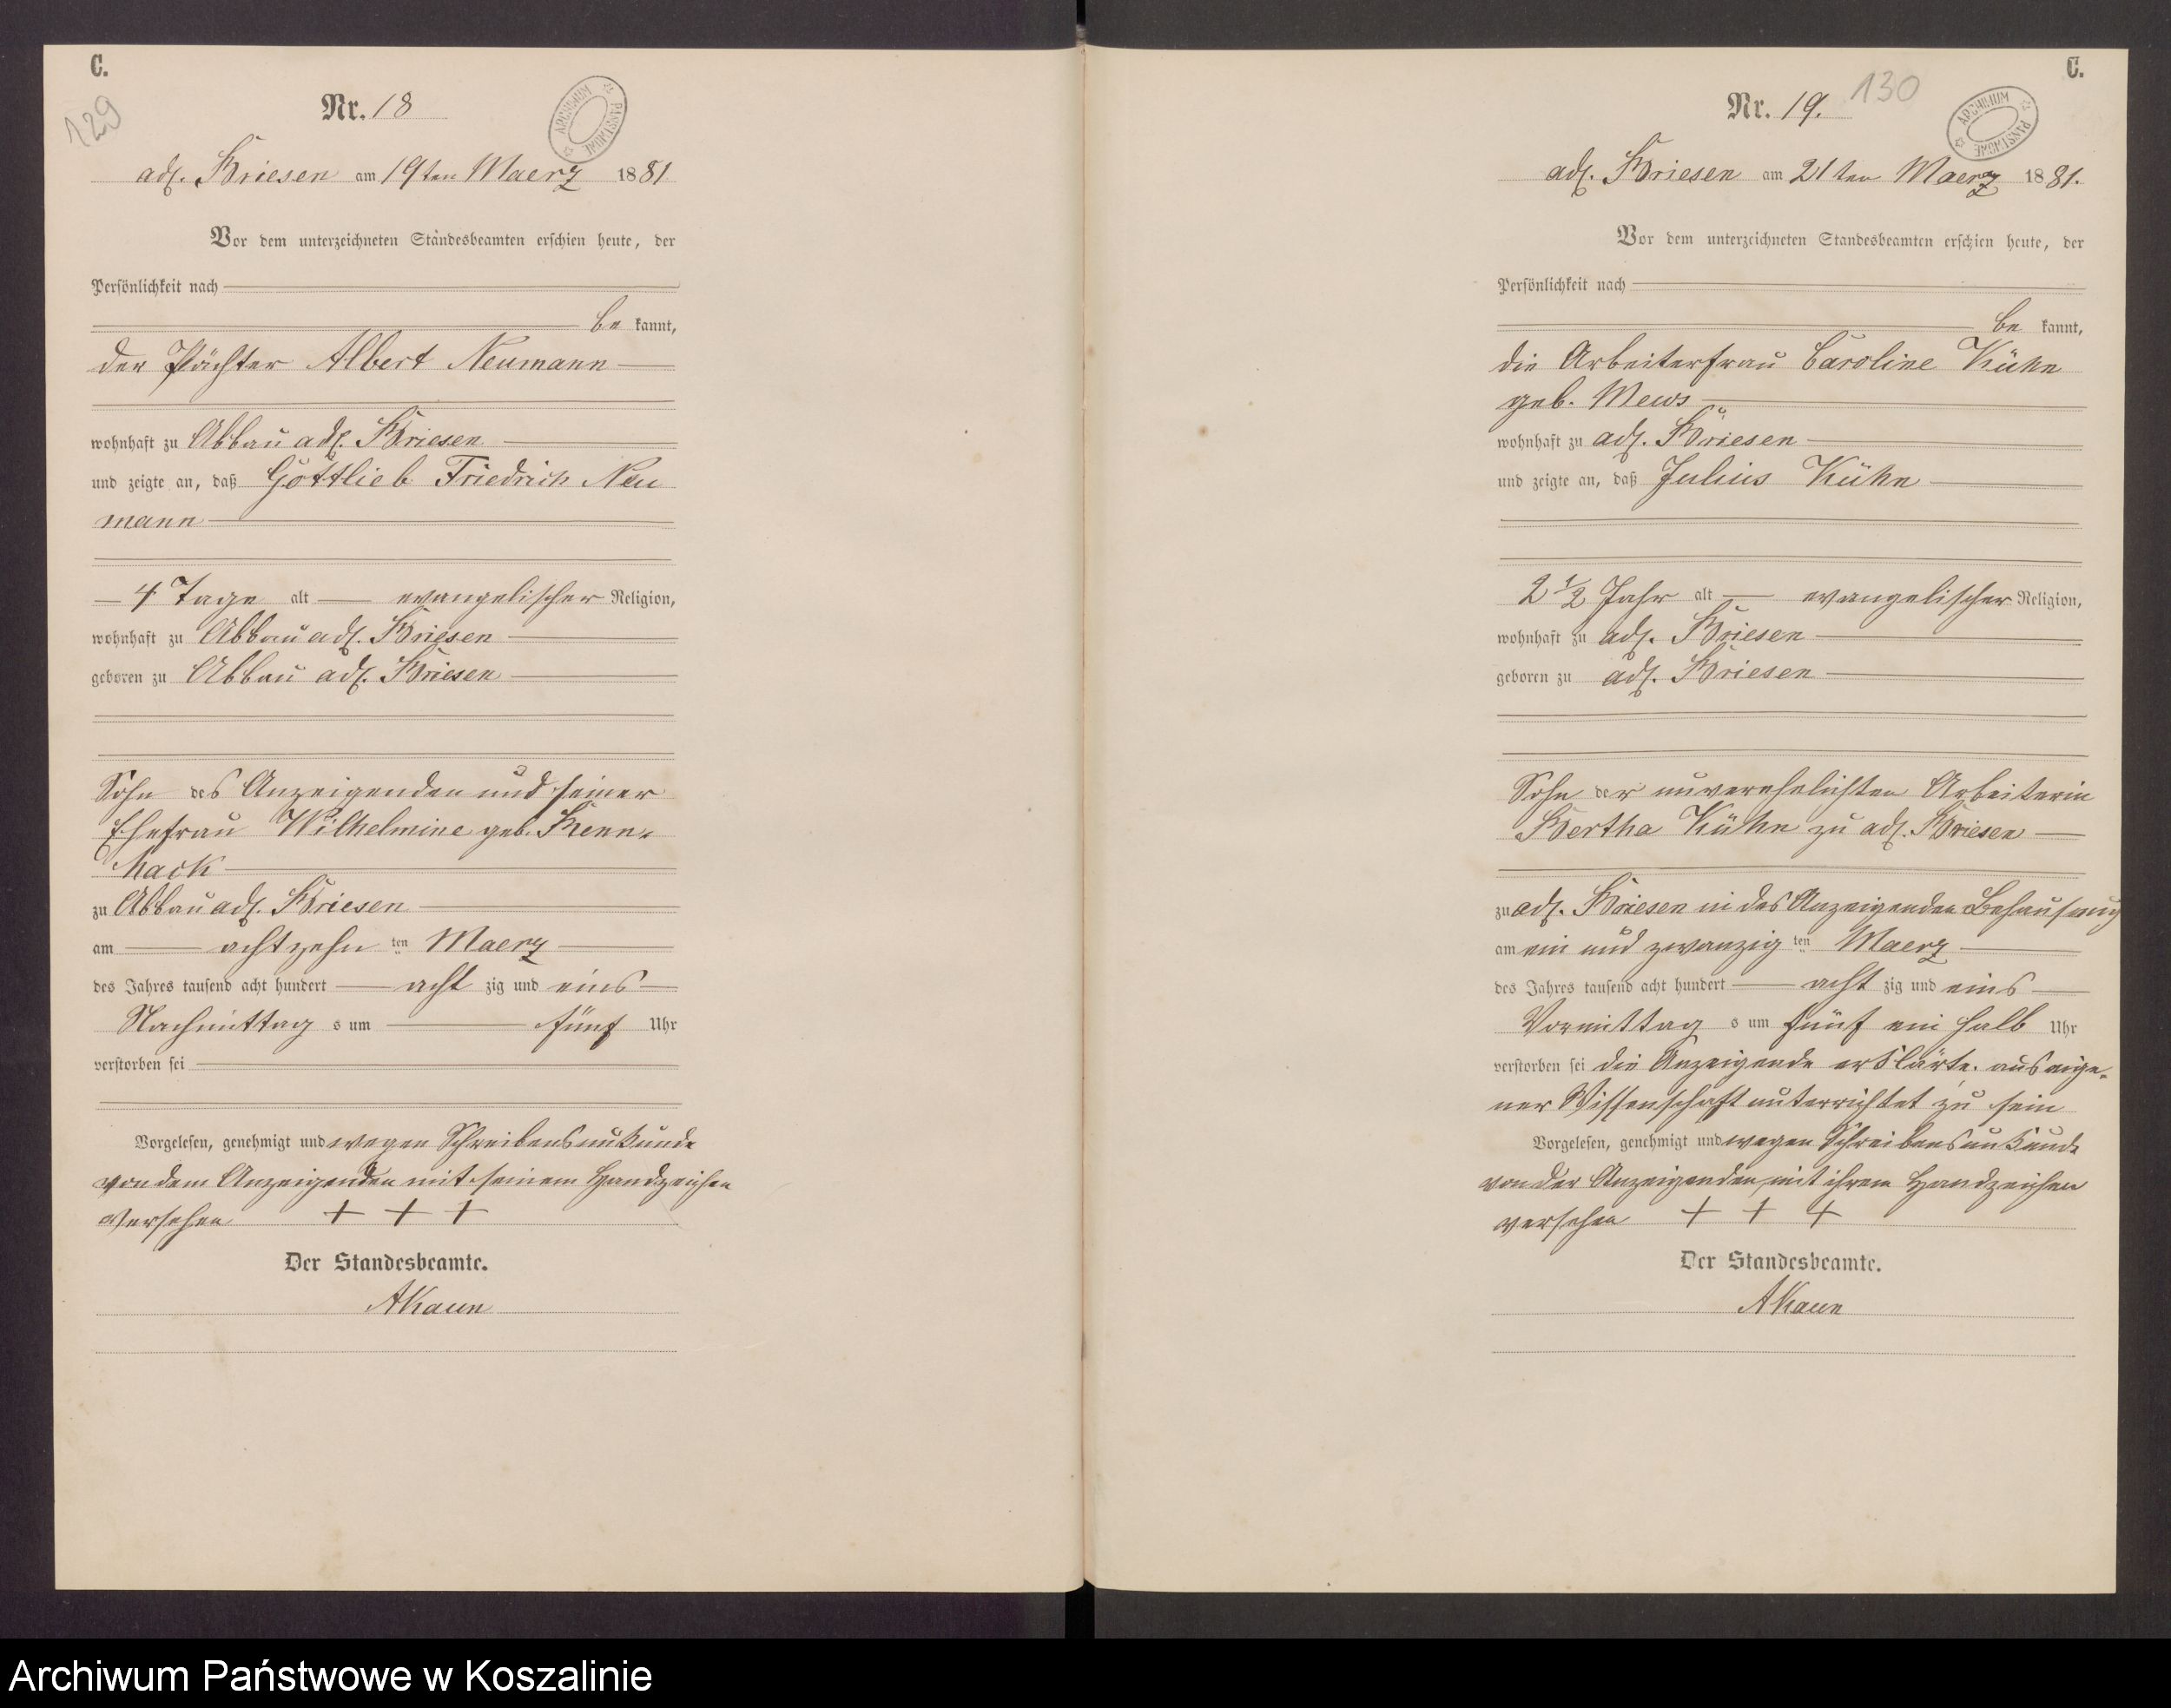 C.
129
Nr. 18
ARCHIWUM PAŃSTWOWE
adl. Briesen am 19ten Maerz 1881
Vor dem unterzeichneten Standesbeamten erschien heute, der
Persönlichkeit nach
be kannt,
der Pächter Albert Neumann
wohnhaft zu Abbau adl. Briesen
und zeigte an, daß Gottlieb Friedrich Neu
mann
4 Tage alt evangelischer Religion,
wohnhaft zu Abbau adl. Briesen
geboren zu Abbau adl. Briesen
Sohn des Anzeigenden und seiner
Ehefrau Wilhelmine geb.
zu Abbau adl. Briesen
am achtzehn ten Maerz
des Jahres tausend acht hundert acht zig und eins
Nachmittag s um fünf Uhr
verstorben sei
Vorgelesen, genehmigt und wegen Schreibensunkunde
von dem Anzeigenden mit seinem Handzeichen
versehen + + +
Der Standesbeamte.
AKaun
C.
130
Nr. 19.
ARCHIWUM PAŃSTWOWE
adl. Briesen am 21ten Maerz 1881.
Vor dem unterzeichneten Standesbeamten erschien heute, der
Persönlichkeit nach
be kannt,
die Arbeiterfrau Caroline Kühn
geb. Mews
wohnhaft zu adl. Briesen
und zeigte an, daß Julius Kühn
2 1/2 Jahr alt evangelischer Religion,
wohnhaft zu adl. Briesen
geboren zu adl. Briesen
Sohn der unverehelichten Arbeiterin
Bertha Kühn zu adl. Briesen
zu adl. Briesen in des Anzeigenden Behausung
am ein und zwanzig ten Maerz
des Jahres tausend acht hundert acht zig und eins
Vormittag s um fünf ein halb Uhr
verstorben sei die Anzeigende erklärte aus eige-
ner Wissenschaft unterrichtet zu sein
Vorgelesen, genehmigt und wegen Schreibensunkunde
von der Anzeigenden mit ihrem Handzeichen
versehen + + +
Der Standesbeamte.
AKaun
Archiwum Państwowe w Koszalinie